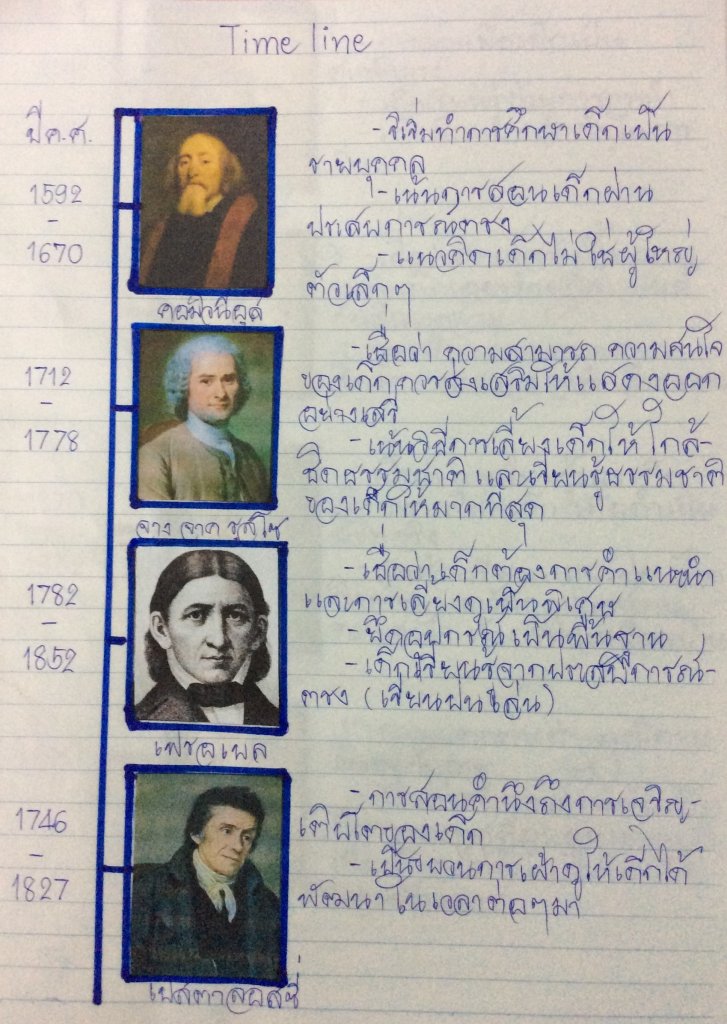 Time line
ปีค.ศ.
- ริเริ่มทำการศึกษาเด็กเป็น
รายบุคคล
1592
-
1670
- เน้นการสอนเด็กผ่าน
ประสบการณ์ตรง
- แนวคิดเด็กไม่ใช่ผู้ใหญ่
ตัวเล็กๆ
คอมิวนิอุส
1712
-
1778
- เชื่อว่า ความสามารถ ความสนใจ
ของเด็กควรส่งเสริมให้แสดงออก
อย่างเสรี
- เน้นวิธีการเลี้ยงเด็กให้ใกล้-
ชิดธรรมชาติ และเรียนรู้ธรรมชาติ
ของเด็กให้มากที่สุด
จาง จาค รุสโซ
1782
-
1852
- เชื่อว่าเด็กต้องการคำแนะนำ
และการเลี้ยงดูเป็นพิเศษ
- ยึดอุปกรณ์เป็นพื้นฐาน
- เด็กเรียนรู้จากประสบการณ์-
ตรง (เรียนปนเล่น)
เฟรอเบล
1746
-
1827
- การสอนคำนึงถึงการเจริญ-
เติบโตของเด็ก
- เป็นกระบวนการเฝ้าดูให้เด็กได้
พัฒนาในเวลาต่อๆมา
เปสตาลอสซี่